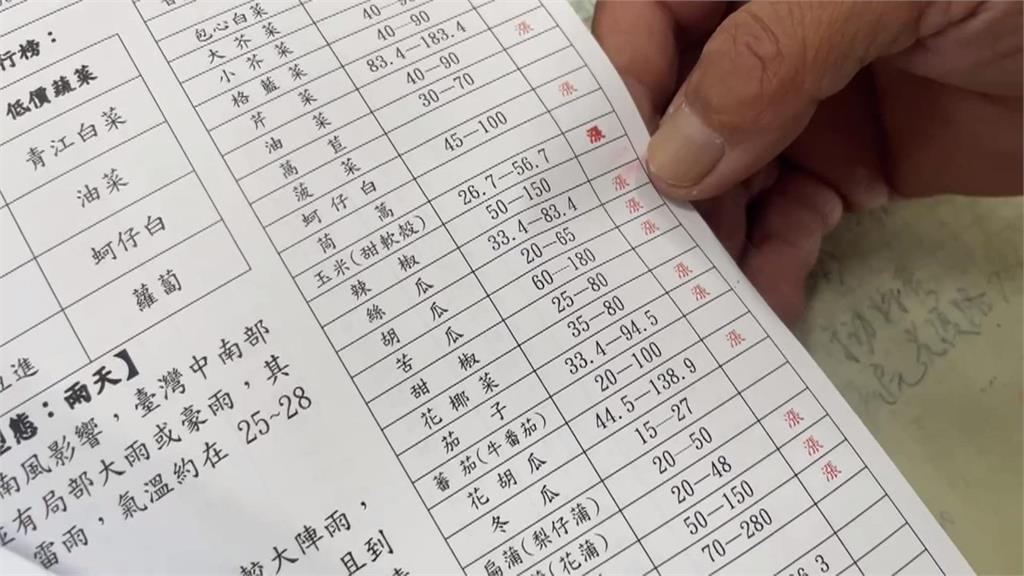 行榜：
低價蔬菜
青江白菜
油菜
蚵仔白
蘿蔔
態：兩天】
南風影響，臺灣中南部
有局部大雨或豪雨，其
雷雨，氣溫約在 25~28
較大陣雨，
且到
包心白菜
大芥菜
小芥菜
格藍菜
芹菜
油菜
萵苣
菠菜
蚵仔白
茼萵
玉米(甜軟殼)
辣椒
絲瓜
胡瓜
苦瓜
甜椒
花椰菜
茄子
蕃茄(牛番茄)
花胡瓜
冬瓜
扁蒲(梨仔蒲)
(花蒲)
40—90
83.4—183.4
40—90
30—70
45—100
26.7—56.7
50—150
33.4—83.4
20—65
60—180
25—80
35—80
33.4—94.5
20—100
44.5—138.9
15—27
20—50
20—48
50—150
70—280
漲
漲
漲
漲
漲
漲
漲
漲
漲
漲
漲
漲